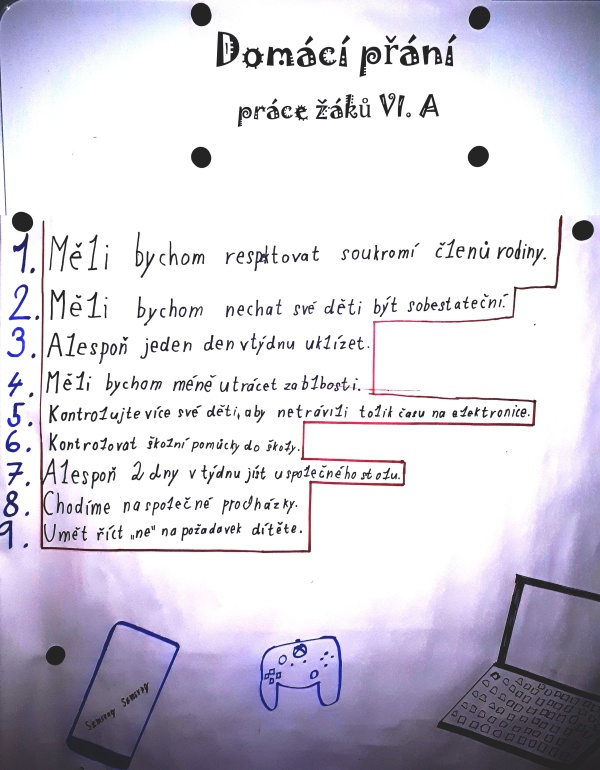 Domácí přání
práce žáků VI. A
1. Měli bychom respktovat soukromí členů rodiny.
2. Měli bychom nechat své děti být sobestateční.
3. Alespoň jeden den v týdnu uklízet.
4. Měli bychom méně utrácet za blbosti.
5. Kontrolujte více své děti, aby netrávili tolik času na elektronice.
6. Kontrolovat školní pomůcky do školy.
7. Alespoň 2 dny v týdnu jút u společného stolu.
8. Chodíme na společné procházky.
9. Umět říct „ne" na požadavek dítěte.
Samsung Samsung